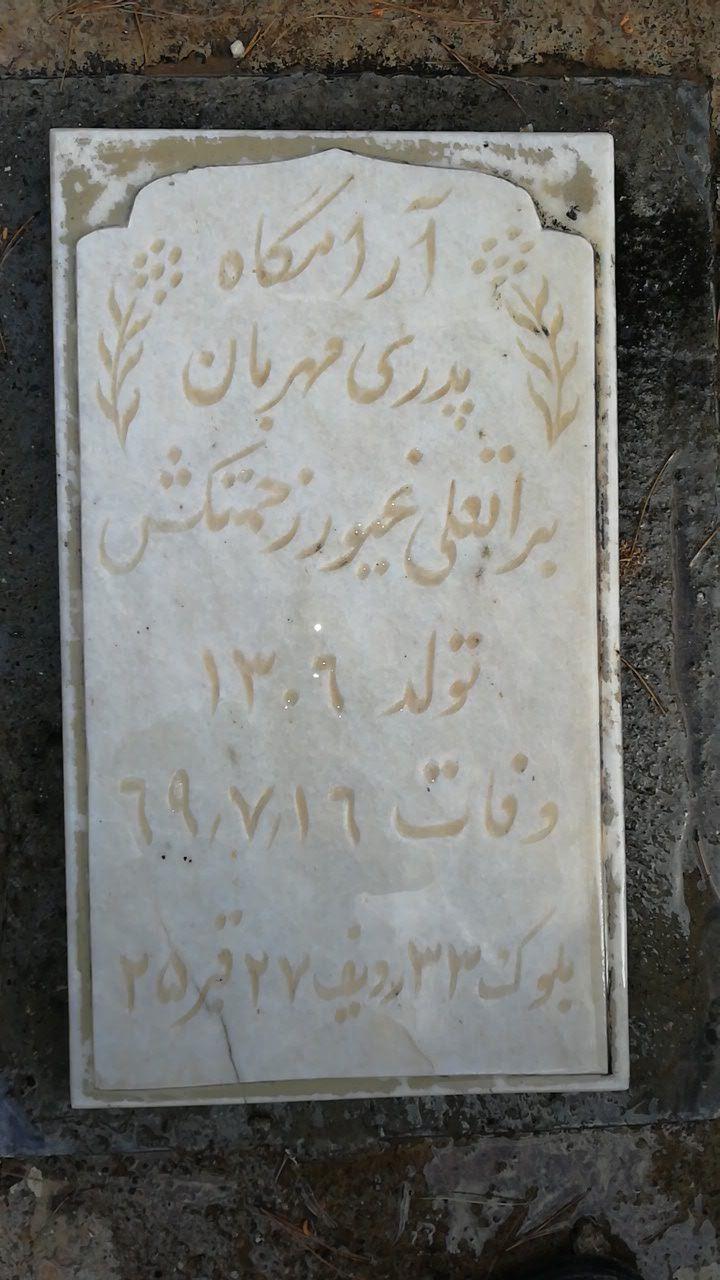 آرامگاه
پدری مهربان
براتعلی غیور زحمتکش
تولد ۱۳۰۶
وفات ۶۹٫۷٫۱۶
بلوک ۳۳ ردیف ۲۷ قبر ۲۵